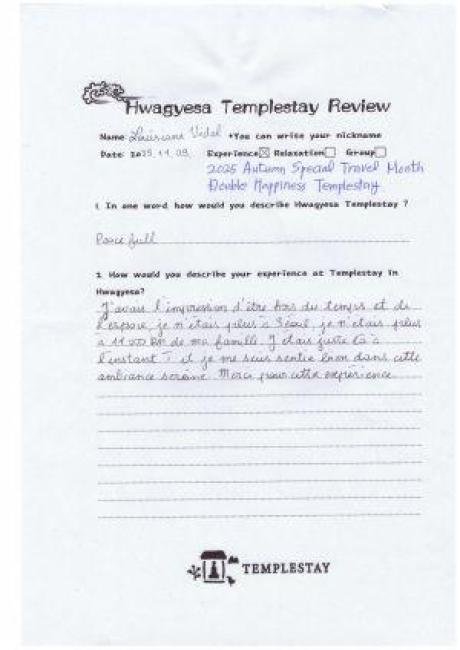 Hwagyesa Templestay Review
Name: Vidal *You can write your nickname
Date: 2025. 11. 09. Experience☒ Relaxation☐ Group☐
2025 Autumn Special Travel Month
Double Happiness Templestay
1. In one word how would you describe Hwagyesa Templestay ?
Peace full
2. How would you describe your experience at Templestay in
Hwagyesa?
J'avais l'impression d'être hors du temps et de
l'espace, je n'étais plus à Séoul, je n'étais plus
à 11 000 km de ma famille. J'étais juste là à
l'instant T et je me suis sentie bien dans cette
ambiance sereine. Merci pour cette expérience.
TEMPLESTAY